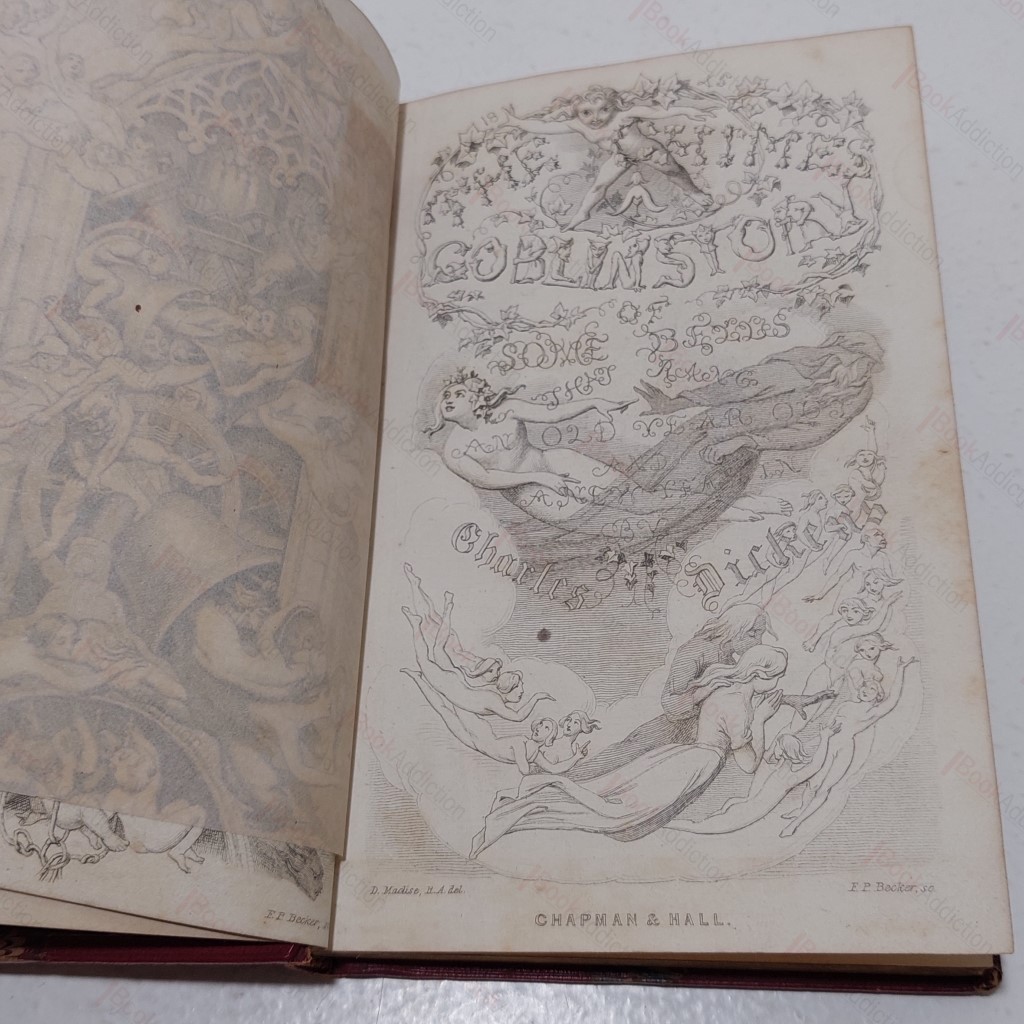 18 45
THE CHIMES
GOBLIN STORY
OF
SOME BELLS
THAT RANG
AN OLD YEAR OUT
AND
A NEW YEAR IN
BY
Charles Dickens
D. Maclise, R.A. del.
F.P. Becker, sc.
CHAPMAN & HALL.
F.P. Becker, s
BookAddiction